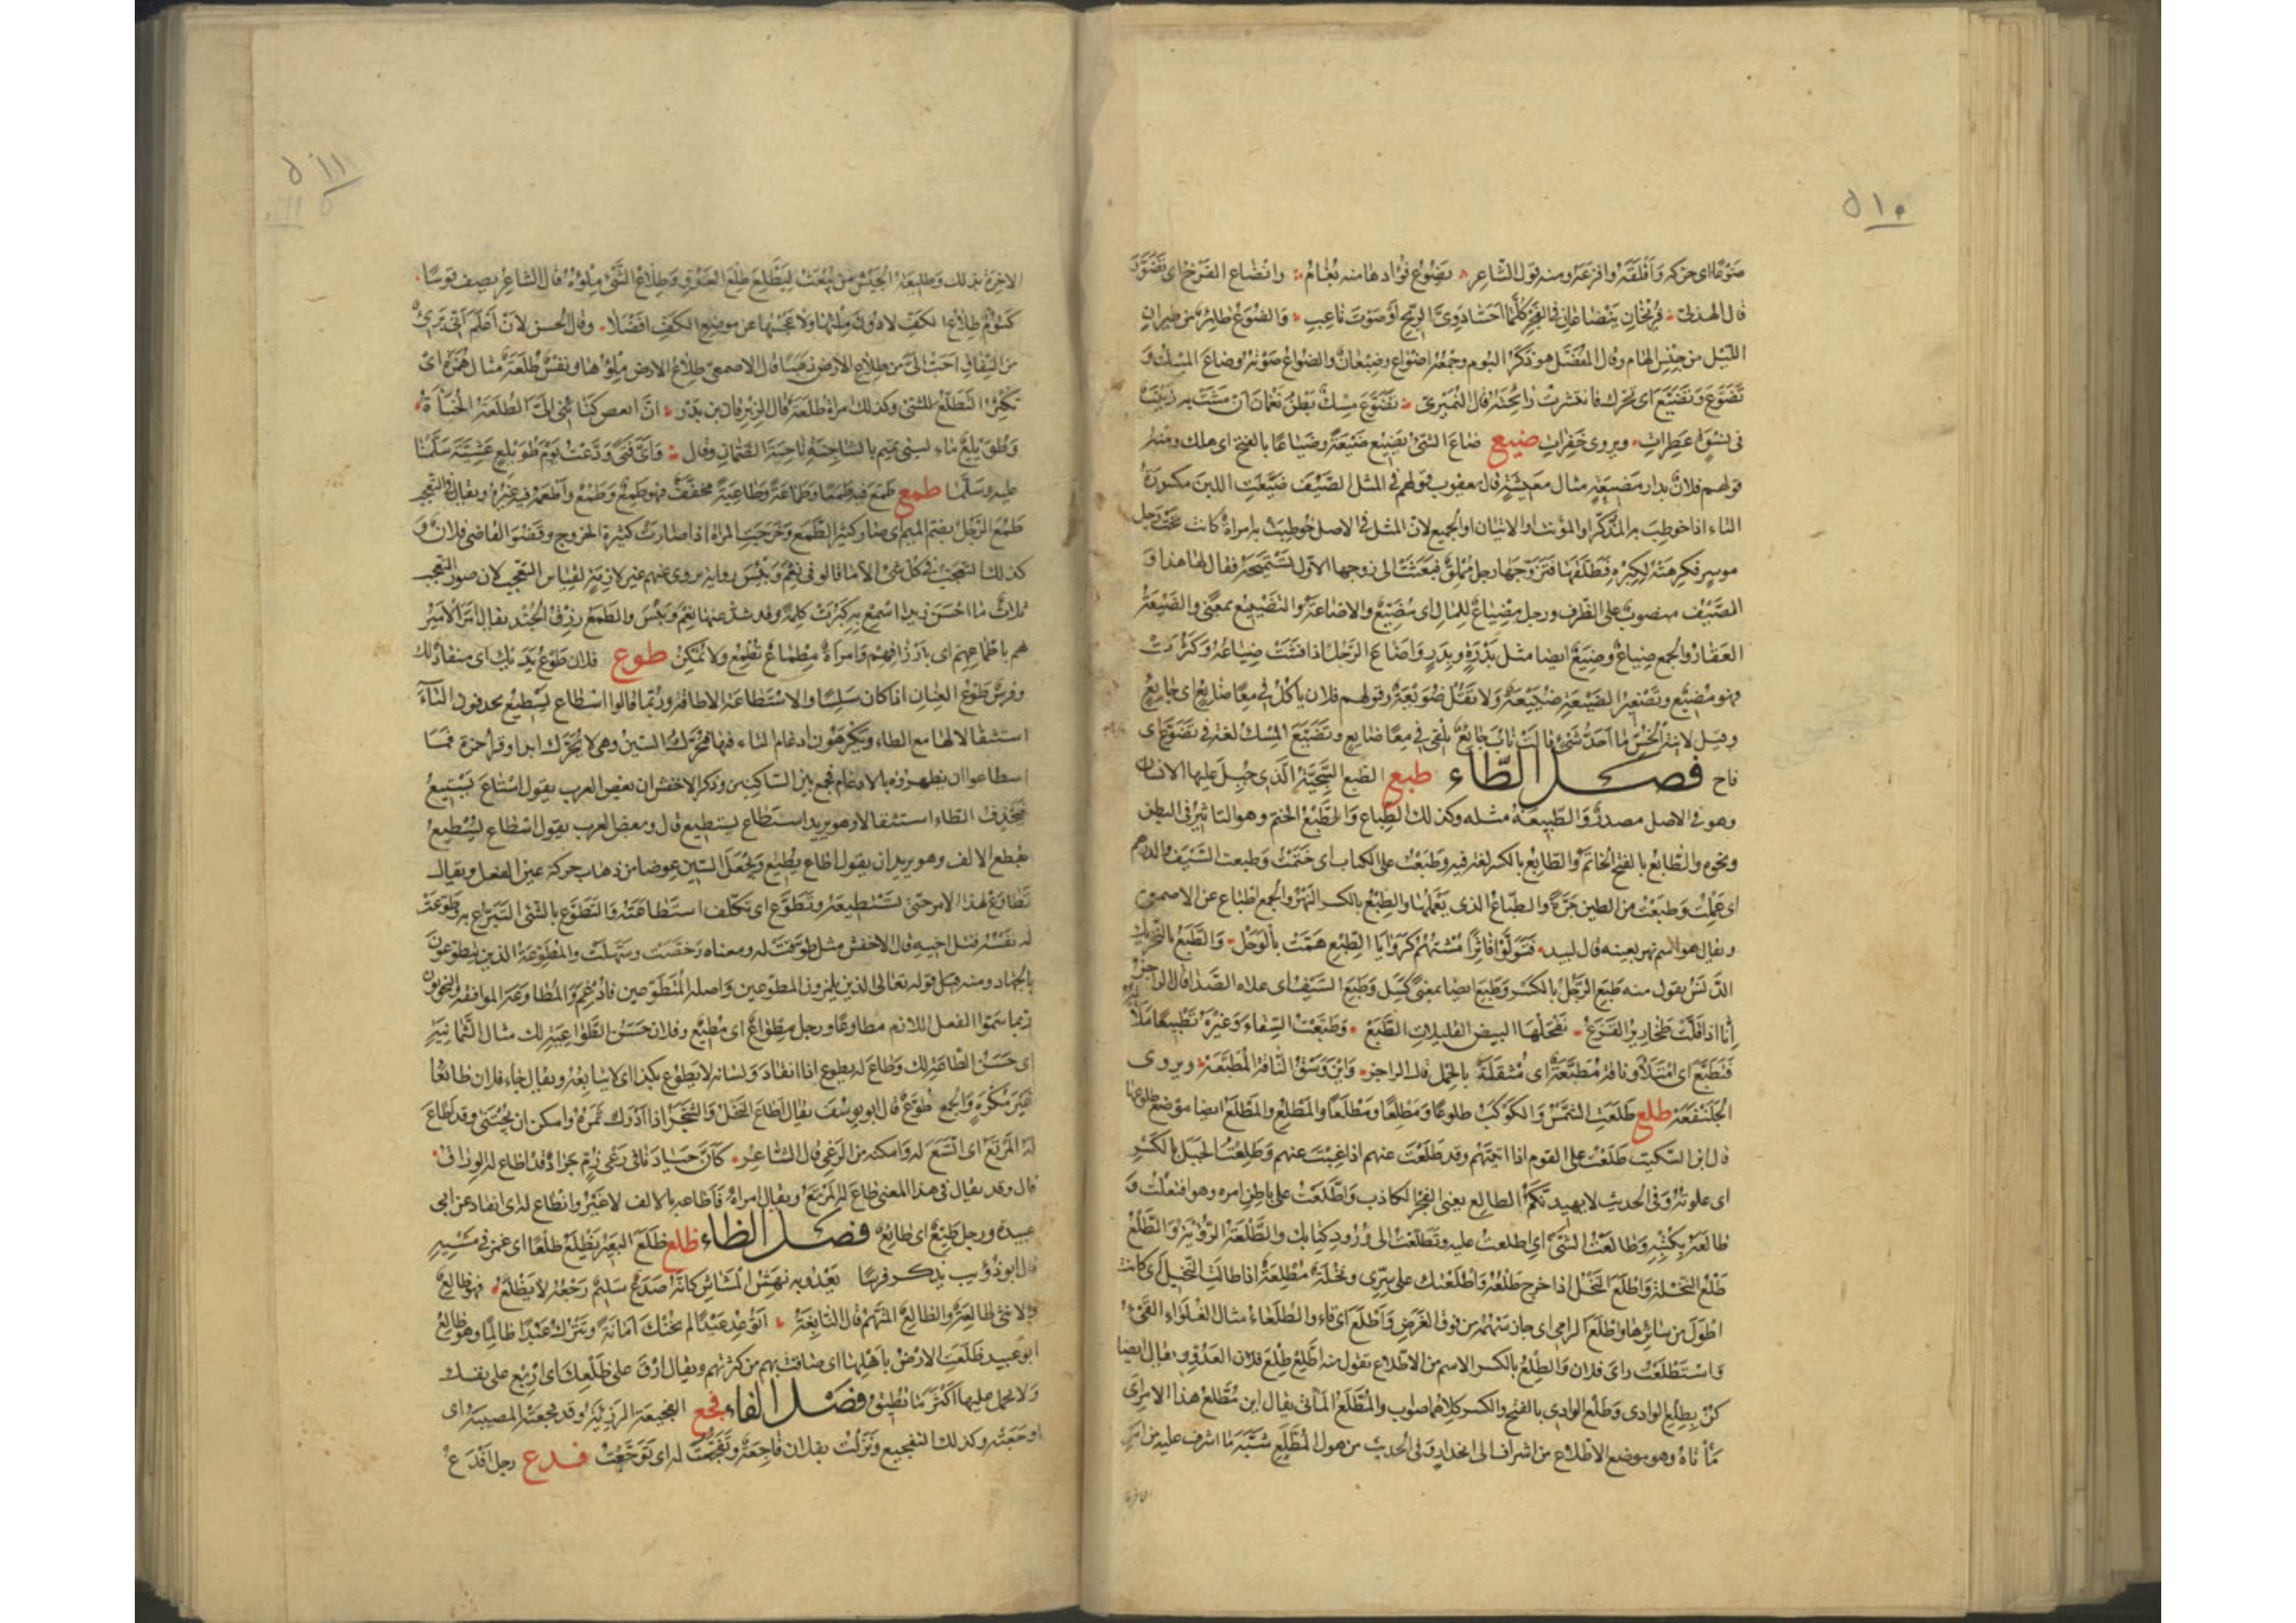 ٥١٠
ضوعا اى حركه واقلقه وافزعه ومنه قول الشاعر يضوع فؤادها منه بغام وانضاع الفرخ اى تضور
قال الهذلى فريخان ينضاعان فى الفجر كلما احسا دوى الريح او صوت ناعب والضوع طائر من طير
الليل من جنس الهام وقال المفضل هو ذكر البوم وجمعه اضواع وضيعان والضواع صوته وضاع المسك و
تضوع وتضيع اى تحرك فانتشرت رائحته قال النميرى تضوع مسكا بطن نعمان ان مشت به زينب
فى نسوة عطرات ويروى خفرات ضيع ضاع الشئ يضيع ضيعة وضياعا بالفتح اى هلك ومنه
قولهم فلان بدار مضيعة مثال معيشة قال يعقوب قولهم فى المثل الصيف ضيعت اللبن مكسورة
التاء اذا خوطب به المذكر او المؤنث او الاثنان او الجميع لان المثل فى الاصل خوطبت به امراة كانت تحت رجل
موسر فكرهته لكبره فطلقها فتزوجها رجل مملق فبعثت الى زوجها الاول تستميحه فقال لها هذا و
الصيف منصوب على الظرف ورجل مضياع للمال اى مضيع والاضاعة والتضييع بمعنى والضيعة
العقار والجمع ضياع وضيع ايضا مثل بدرة وبدر واضاع الرجل اذا فشت ضياعه وكثرت
فهو مضيع وتصغير الضيعة ضييعة ولا تقل ضويعة وقولهم فلان ياكل فى معا ضايع اى جايع
وقيل لابنة الخس ما احد شئ قالت ناب جايع يلقى فى معا ضايع وتضيع المسك لغة فى تضوع اى
فاح فصل الطاء طبع الطبع السجية الذى جبل عليها الانسان
وهو فى الاصل مصدر والطبيعة مثله وكذلك الطباع والطبع الختم وهو التاثير فى الطين
ونحوه والطابع بالفتح الخاتم والطابع بالكسر لغة فيه وطبعت على الكتاب اى ختمت وطبعت السيف والدرهم
اى عملت وطبعت من الطين جرة والطباع الذى يعملها والطبع بالكسر النهر والجمع اطباع عن الاصمعى
ويقال هو اسم نهر بعينه قال لبيد فتولوا فاترا مشيهم كروايا الطبع همت بالوحل والطبع بالتحريك
الدنس يقول منه طبع الرجل بالكسر وطبع ايضا بمعنى كسل وطبع السيف اى علاه الصدا قال الراجز
انا اذا قلت طخارير القزع نفحلها البيض القليلات الطبع وطبعت السقاء وغيره تطبيعا ملأته
فتطبع اى امتلأ وناقة مطبعة اى مثقلة بالحمل قال الراجز واين وسق الناقة المطبعة ويروى
الجلنفعة طلع طلعت الشمس والكوكب طلوعا ومطلعا ومطلعا والمطلع والمطلع ايضا موضع طلوعها
قال ابن السكيت طلعت على القوم اذا اتيتهم وقد طلعت عنهم اذا غبت عنهم وطلعت الجبل بالكسر
اى علوته وفى الحديث لا يهيدنكم الطالع يعنى الفجر الكاذب واطلعت على باطن امره وهو افتعلت و
طالعه بكتبه وطالعت الشئ اى اطلعت عليه وتطلعت الى ورود كتابك والطلعة الرؤية والطلع
طلع النخلة واطلع النخل اذا خرج طلعه واطلعتك على سرى ونخلة مطلعة اذا طالت النخيل اى كانت
اطول من سائرها واطلع الرامى اى جاز سهمه من فوق الغرض واطلع اى قاء والطلعاء مثال الغلواء القئ
واستطلعت راى فلان والطلع بالكسر الاسم من الاطلاع تقول منه اطلع طلع فلان العدو ويقال ايضا
كن بطلع الوادى وطلع الوادى بالفتح والكسر كلاهما صواب والمطلع المأتى يقال اين مطلع هذا الامر اى
مأتاه وهو موضع الاطلاع من اشراف الى انحدار وفى الحديث من هول المطلع شبه ما اشرف عليه من امر
الاخرة
٥١١
الاخرة بذلك وطليعة الجيش من يبعث ليطلع طلع العدو وطلاع الشئ ملؤه قال الشاعر يصف قوسا
كتوم طلاع الكف لا دون ملئها ولا عجسها عن موضع الكف افضلا وقال الحسن لان اعلم انى برئ
من النفاق احب الى من طلاع الارض ذهبا قال الاصمعى طلاع الارض ملؤها ونفس طلعة مثال همزة اى
تكثر التطلع للشئ وكذلك امراة طلعة قال الزبرقان بن بدر ان ابغض كنائنى الى الطلعة الخبأة
وطويلع ماء لبنى تميم بالشاجنة ناحية الصمان وقال واى فتى ودعت يوم طويلع عشية سلمنا
عليه وسلما طمع طمع فيه طمعا وطماعة وطماعية مخففة فهو طمع وطمع واطمعه فيه غيره ويقال فى التعجب
طمع الرجل بضم الميم اى صار كثير الطمع وخرجت المراة اذا صارت كثيرة الخروج وقضو القاضى فلان و
كذلك التعجب فى كل شئ الا ما قالوا فى نعم وبئس رواية تروى عنهم غير لازمة لقياس التعجب لان صور التعجب
ثلاث ما احسن زيدا اسمع به كبرت كلمة وقد شذ عنها نعم وبئس والطمع رزق الجند يقال امر لهم الامير
باطماعهم اى بارزاقهم وامراة مطماع تطمع ولا تمكن طوع فلان طوع يديك اى منقاد لك
وفرس طوع العنان اذا كان سلسا والاستطاعة الاطاقة وربما قالوا اسطاع يسطيع يحذفون التاء
استثقالا لها مع الطاء ويكرهون ادغام التاء فيها فتحرك السين وهى لا تحرك ابدا وقرا حمزة فما
اسطاعوا ان يظهروه بالادغام فجمع بين الساكنين وذكر الاخفش ان بعض العرب يقول استاع يستيع
فيحذف الطاء استثقالا وهو يريد استطاع يستطيع قال وبعض العرب يقول اسطاع يسطيع
بقطع الالف وهو يريد ان يقول اطاع يطيع ويجعل السين عوضا من ذهاب حركة عين الفعل ويقال
تطاوع لهذا الامر حتى تستطيعه وتطوع اى تكلف استطاعته والتطوع بالشئ التبرع به وطوعت
له نفسه قتل اخيه قال الاخفش مثل طوقت له ومعناه رخصت وسهلت والمطوعة الذين يتطوعون
بالجهاد ومنه قوله تعالى الذين يلمزون المطوعين واصله المتطوعين فادغم والمطاوعة الموافقة والنحويون
ربما سموا الفعل اللازم مطاوعا ورجل مطواع اى مطيع وفلان حسن الطواعية لك مثال الثمانية
اى حسن الطاعة لك وطاع له يطوع اذا انقاد ولسانه لا يطوع بكذا اى لا يتابعه ويقال جاء فلان طائعا
غير مكره والجمع طوع قال ابو يوسف يقال اطاع النخل والشجر اذا ادرك ثمره وامكن ان يجتنى وقد اطاع
له المرتع اى اتسع له وامكنه من الرعى قال الشاعر كأن جيادهن برعن زم جراد قد اطاع له الوراق
قال وقد يقال فى هذا المعنى طاع له المرتع ويقال امره فاطاعه بالالف لا غير وانطاع له اى انقاد عن ابى
عبيدة ورجل طيع اى طائع فصل الظاء ظلع ظلع البعير يظلع ظلعا اى غمز فى مشيه
قال ابو ذؤيب يذكر فرسا يعدو به نهش المشاش كانه صدع سليم رجعه لا يظلع فهو ظالع
والانثى ظالعة والظالع المتهم قال النابغة اتوعد عبدا لم يخنك امانة وتترك عبدا ظالما وهو ظالع
ابو عبيد ظلعت الارض باهلها اى ضاقت بهم من كثرتهم ويقال ارق على ظلعك اى اربع على نفسك
ولا تحمل عليها اكثر مما تطيق فصل الفاء فجع الفجيعة الرزية وقد فجعته المصيبة اى
اوجعته وكذلك التفجيع ونزلت بفلان فاجعة وتفجعت له اى توجعت فدع رجل افدع